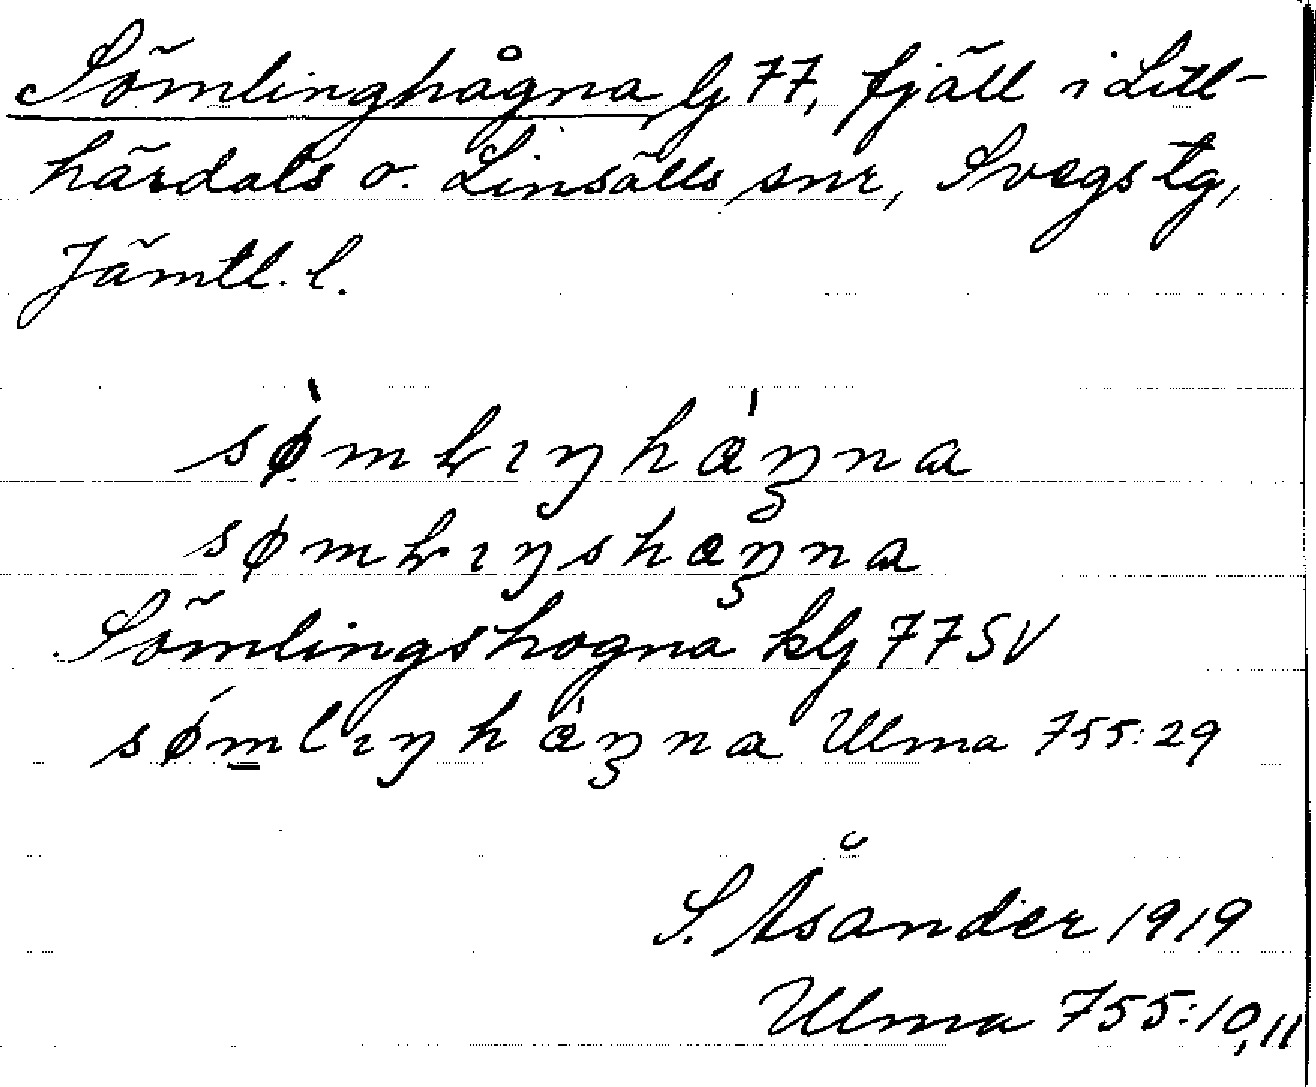 Sömlinghågna lj 77, fjäll i Lill-
härdals o. Linsälls snr, Svegs tg,
Jämtl. l.
sø̀mƚıŋhàꞥna
sømƚıŋshaꞥna
Sömlingshogna klj 77 SV
sǿmlıŋhàꞥna Ulma 755:29
S. Åsander 1919
Ulma 755:10,11